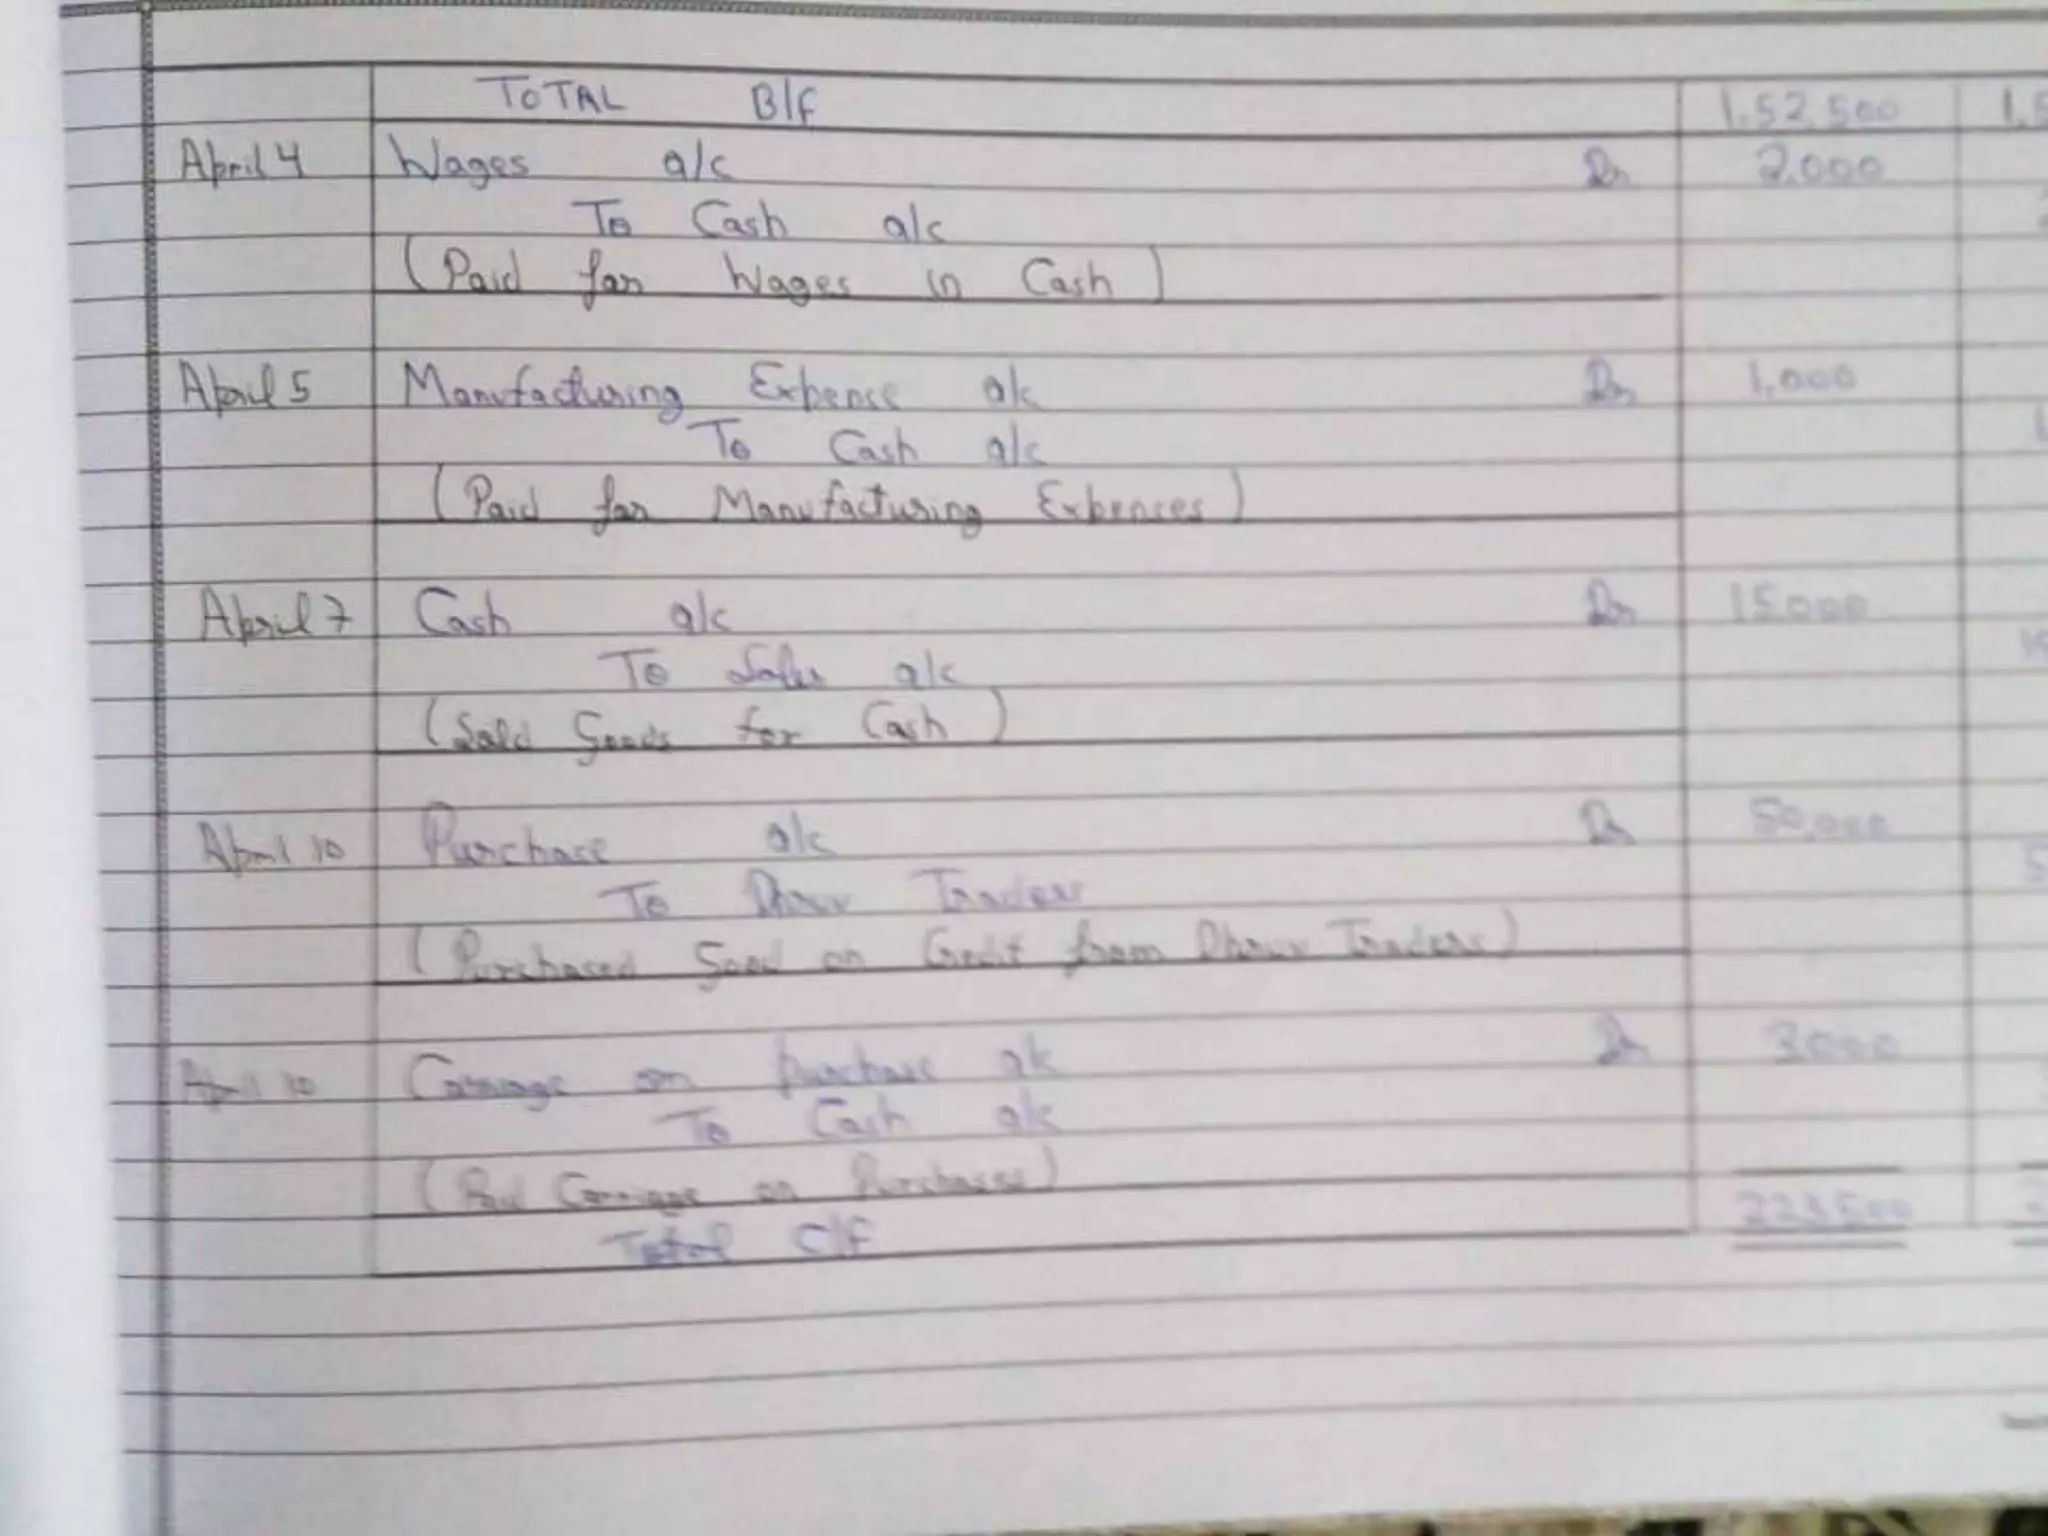 TOTAL B/f 1,52,500 1,5
April 4 Wages a/c Dr 2,000
To Cash a/c
(Paid for Wages in Cash)
April 5 Manufacturing Expense a/c Dr 1,000
To Cash a/c
(Paid for Manufacturing Expenses)
April 7 Cash a/c Dr 15,000
To Sales a/c
(Sold Goods for Cash)
April 10 Purchase a/c Dr 50,000
To Dhruv Traders
(Purchased Good on Credit from Dhruv Traders)
April 10 Carriage on purchase a/c Dr 3000
To Cash a/c
(Paid Carriage on Purchases)
Total C/f 223500